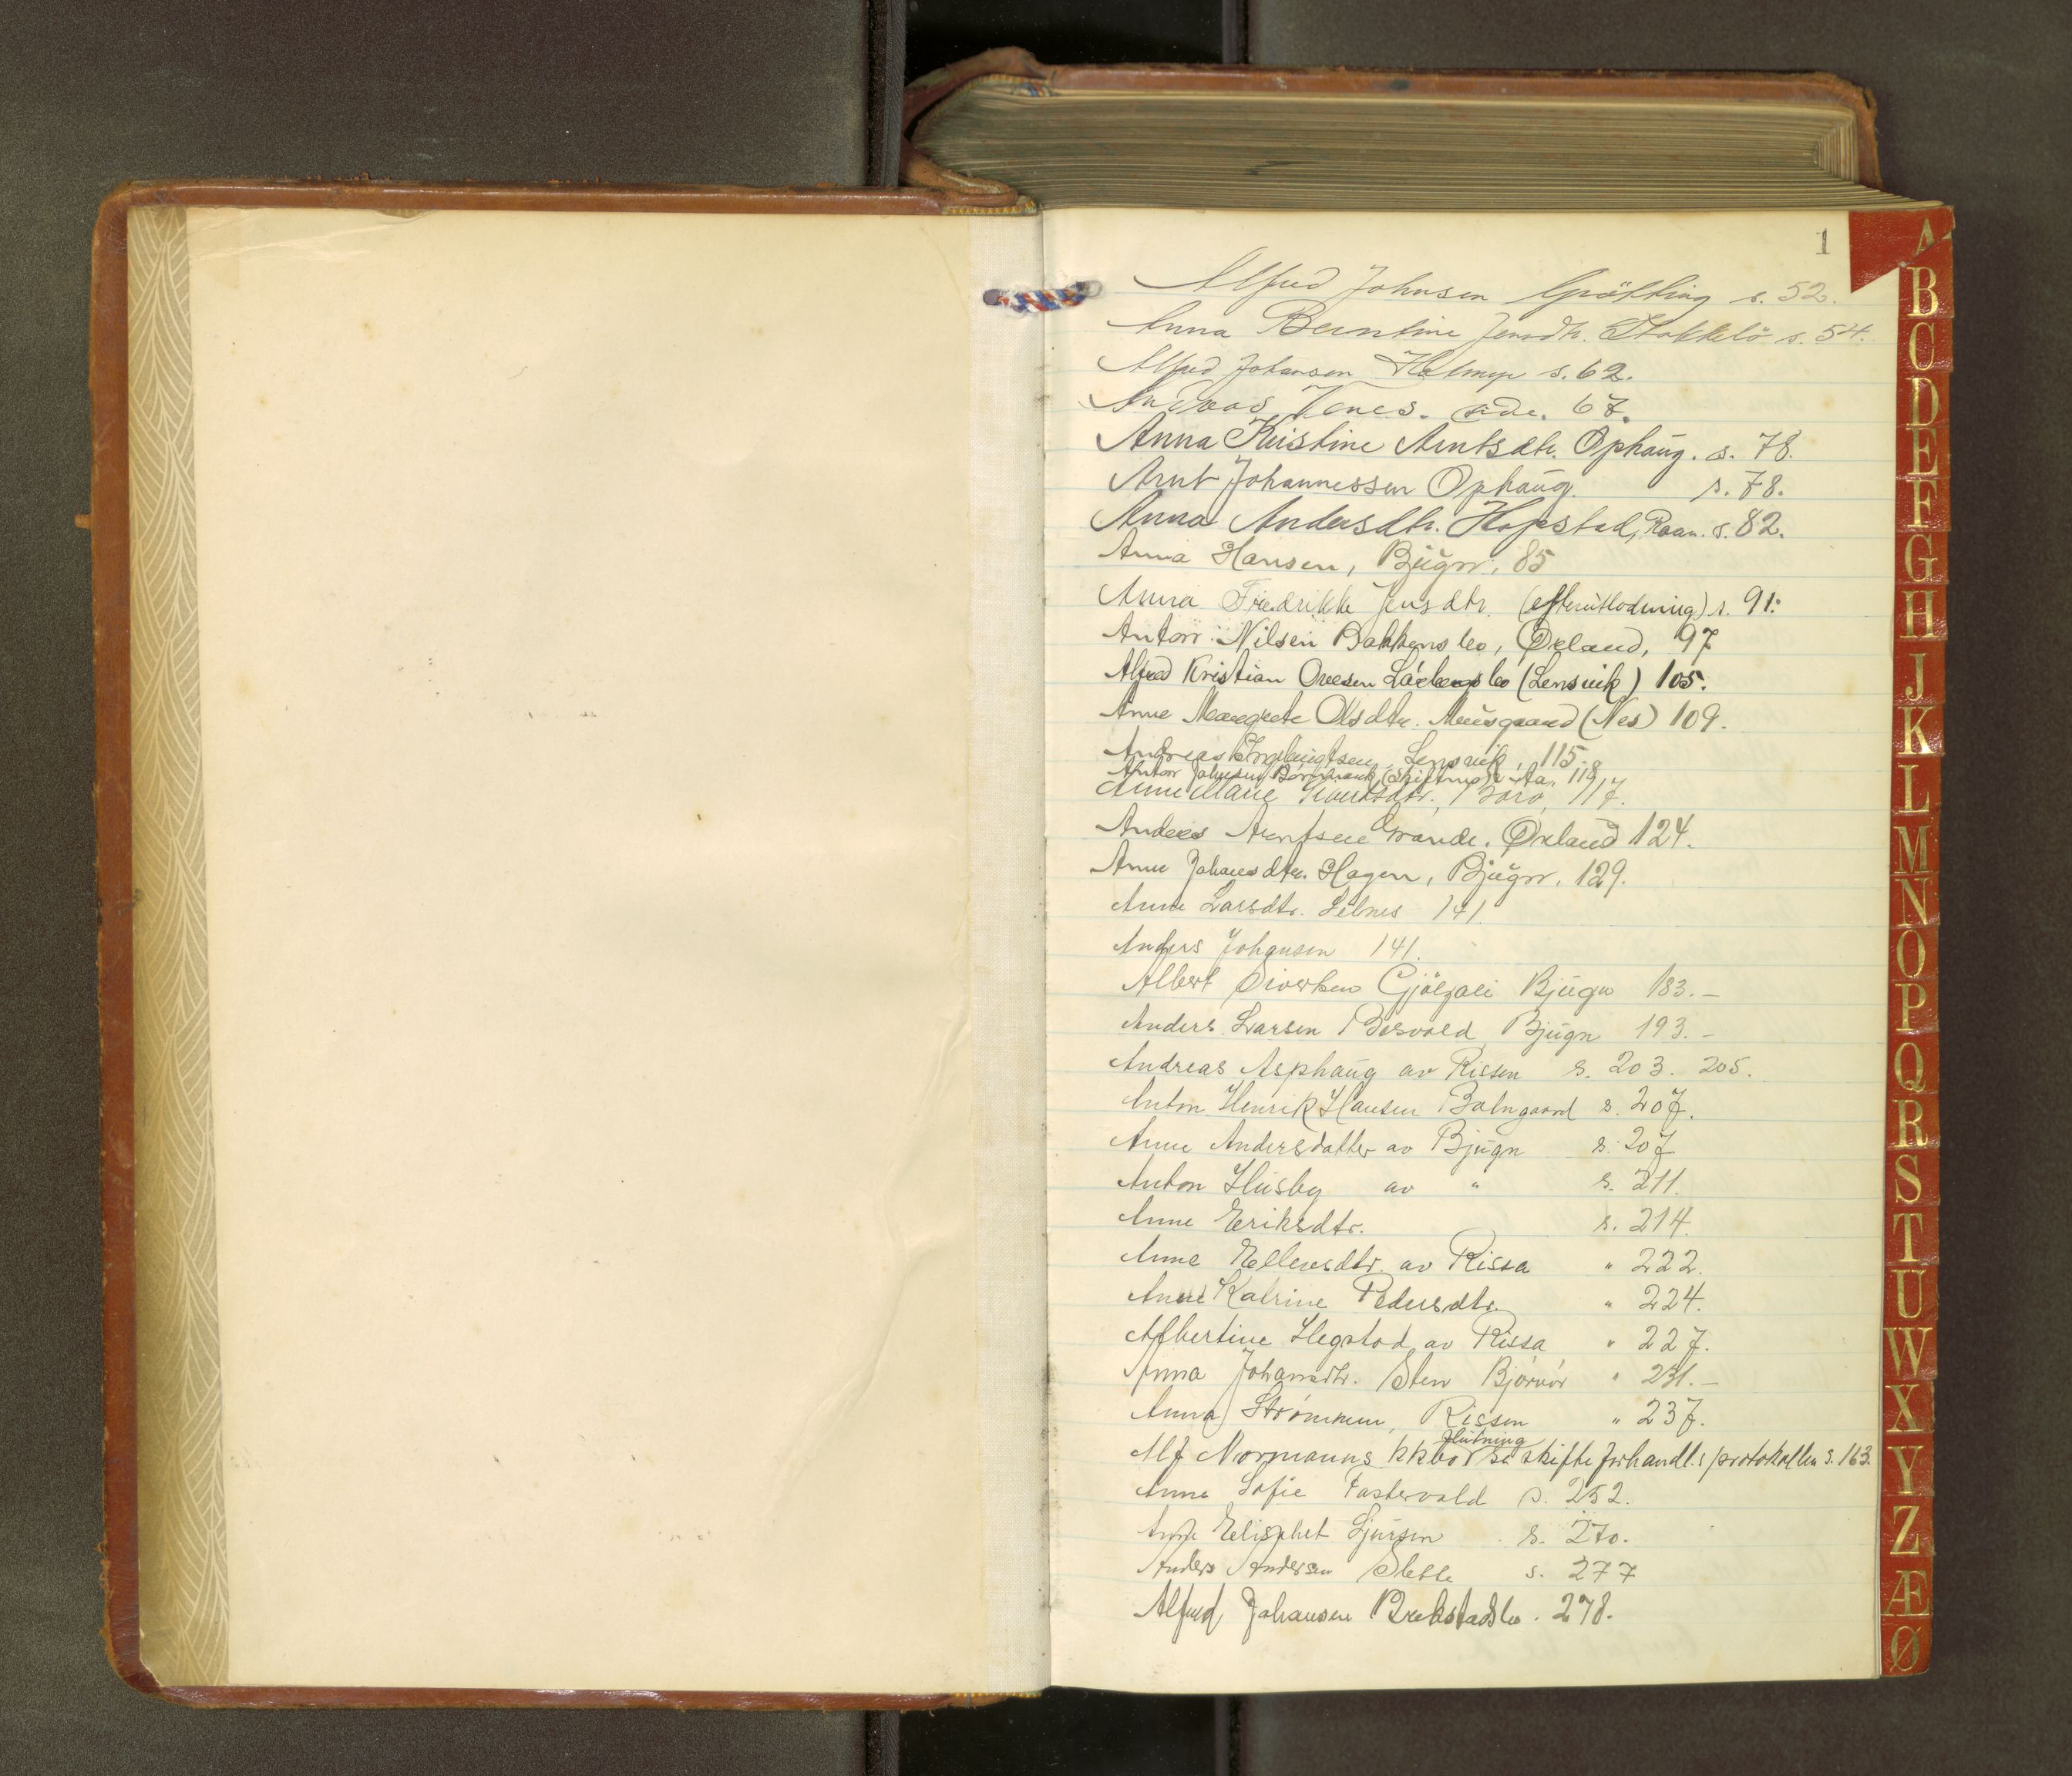 1
Alfred Johnsen Grøtting s. 52.
Anna Berntine Jensdtr. Stokkelø s. 54.
Alfred Johansen s. 62.
side. 67.
Anna Kristine Arntsdtr. Ophaug. s. 78.
Arnt Johannessen Ophaug. s. 78.
Anna Andersdtr. Hopstad, Roan. s. 82.
Anna Hansen, Bjugn, 85
Anna Fredrikke Jensdtr. (efterutlodning) s. 91.
Anton Nilsen Bakkens bo, Ørland, 97
Alfred Kristian Ovesen bo (Lensvik) 105.
Anne Margrete Olsdtr. (Nes) 109.
Andreas Lensvik, 115.
Anton Johnsen 118
Anne Marie 117.
Anders Arntsen Grande. Ørland 124.
Anne Johansdtr. Hagen, Bjugn, 129.
Anne Larsdtr. Selnes 141.
Anders Johansen 141.
Albert Sivertsen Bjugn 183.-
Anders Larsen Bjugn 193.-
Andreas Asphaug av Rissen s. 203. 205.
Anton Henrik Hansen s. 207.
Anne Andersdatter av Bjugn s. 207
Anton Husby av " s. 211.
Anne Eriksdtr. s. 214.
Anne Ellevsdtr. av Rissa " 222.
Anne Katrine Pedersdtr. " 224.
Albertine Hegstad av Rissa " 227.
Anna Johansdtr. Sten Bjørnør " 231.-
Anna Strømmen, Rissen " 237.
Slutning
Alf Normanns kkbo se skifteforhandl.sprotokollen s. 163.
Anne Sofie s. 252.
Anne Elisabet Sjursen s. 270.
Anders Andersen Slette s. 277
Alfred Johansen Brekstadsbo. 278.
A
B
C
D
E
F
G
H
J
K
L
M
N
O
P
Q
R
S
T
U
W
X
Y
Z
Æ
Ø